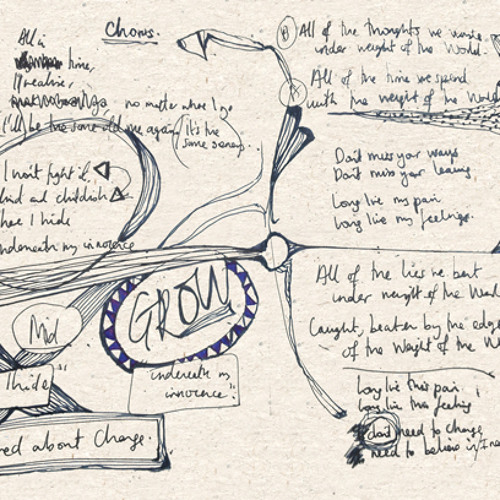 Chorus.
All in
time,
I realise,
no matter where I go
I'll be the same old me again
It's the
same
I won't fight it
and childish
I hide
underneath my innocence
GROW
Mid
I hide"
"underneath my
innocence"
about Change.
B All of the thoughts we
under weight of the World.
All of the time we spend
with the weight of the World
Don't miss your ways
Don't miss your leaving
Long live my pain
Long live my feelings.
All of the lies we bent
under weight of the
Caught, beaten by the edge
of the Weight of the
Long live this pain
Long live this feeling
don't need to change
need to believe in